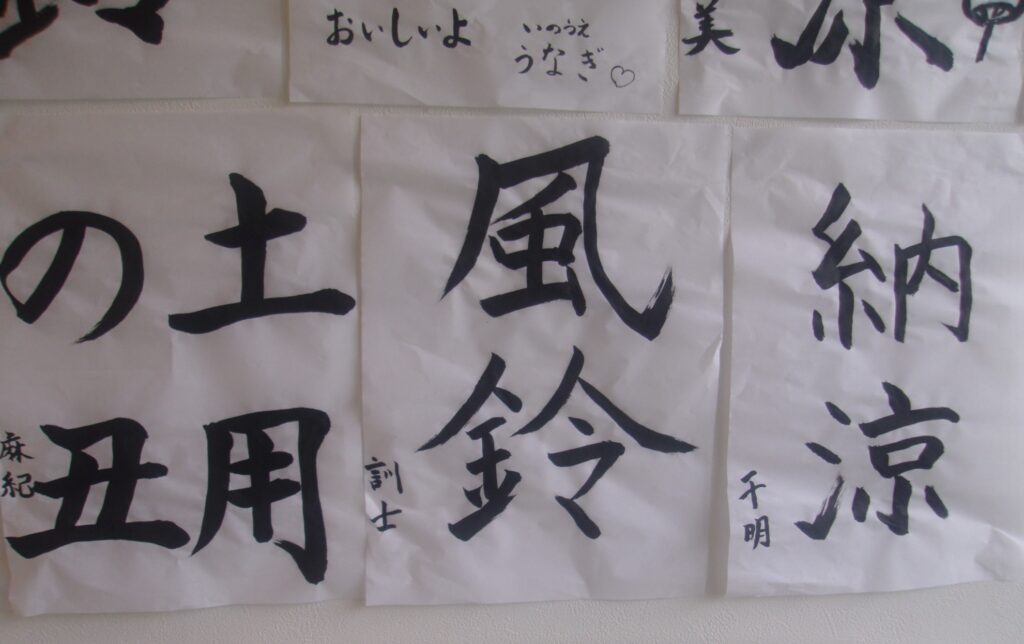 おいしいよ
いのうえ
うなぎ♡
美
納涼
千明
風鈴
訓士
土用
の丑
麻紀